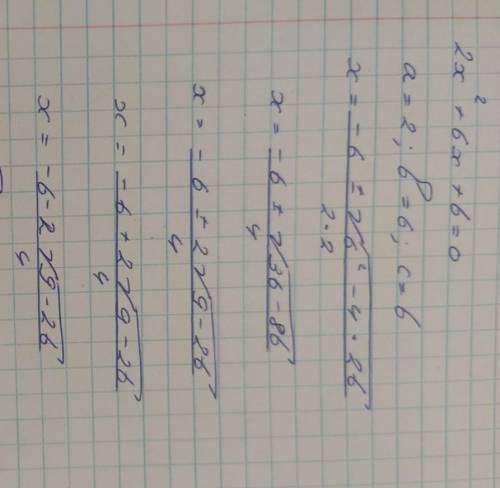 2x² + 6x + b = 0
a = 2; b = 6; c = b
x = (-6 ± √(6² - 4 · 2b)) / (2·2)
x = (-6 ± √(36 - 8b)) / 4
x = (-6 ± 2√(9 - 2b)) / 4
x = (-6 + 2√(9 - 2b)) / 4
x = (-6 - 2√(9 - 2b)) / 4